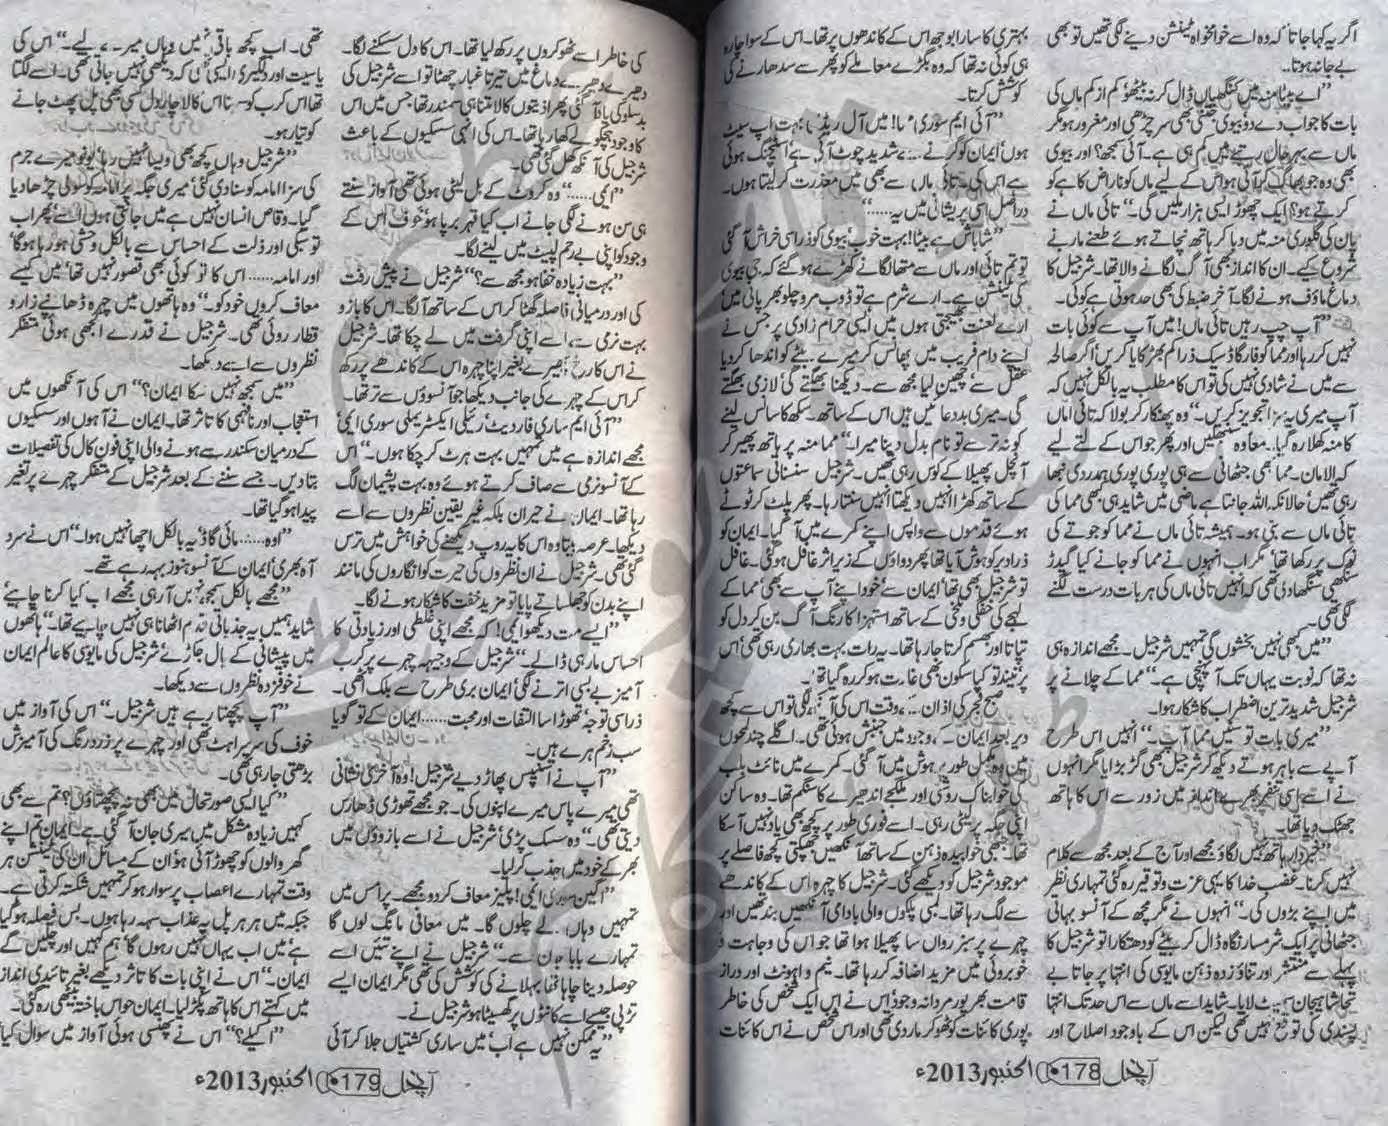 اگر یہ کہا جاتا کہ وہ اسے خوامخواہ ٹینشن دینے لگی تھیں تو بھی
بے جا نہ ہوتا۔
”اے بیٹا منہ میں گھنگھنیاں ڈال کر نہ بیٹھو کم از کم ماں کی
بات کا جواب دے دو بیوی جتنی بھی سر چڑھی اور مغرور ہو مگر
ماں سے بہر حال رتبے میں کم ہی ہے۔ آئی سمجھ؟ اور بیوی
بھی وہ جو بھاگ کر آئی ہو اس کے لیے ماں کو ناراض کاہے کو
کرتے ہو؟ ایک چھوڑ ایسی ہزار ملیں گی۔“ تائی ماں نے
پان کی گلوری منہ میں دبا کر ہاتھ نچاتے ہوئے طعنے مارنے
شروع کیے۔ ان کا انداز بھی آگ لگانے والا تھا۔ شرجیل کا
دماغ ماؤف ہونے لگا۔ آخر ضبط کی بھی حد ہوتی ہے کوئی۔
”آپ چپ رہیں تائی ماں! میں آپ سے کوئی بات
نہیں کر رہا اور مما کو فار گاڈ سیک ذرا کم بھڑکایا کریں اگر صالحہ
سے میں نے شادی نہیں کی تو اس کا مطلب یہ بالکل نہیں کہ
آپ میری یہ سزا تجویز کریں۔“ وہ پھنکار کر بولا کہ تائی اماں
کا منہ کھلا رہ گیا۔ معاً وہ سنبھلیں اور پھر جو اس کے لتے لیے
کہ الامان۔ مما بھی جٹھانی سے ہی پوری پوری ہمدردی نبھا
رہی تھیں حالانکہ اللہ جانتا ہے ماضی میں شاید ہی کبھی مما کی
تائی ماں سے بنی ہو۔ ہمیشہ تائی ماں نے مما کو جوتے کی
نوک پر رکھا تھا مگر اب انہوں نے مما کو جانے کیا گیدڑ
سنگھی سنگھا دی تھی کہ انہیں تائی ماں کی ہر بات درست لگنے
لگی تھی۔
”میں بھی نہیں بخشوں گی تمہیں شرجیل۔ مجھے اندازہ ہی
نہ تھا کہ نوبت یہاں تک آ پہنچی ہے۔“ مما کے چلانے پر
شرجیل شدید ترین اضطراب کا شکار ہوا۔
”میری بات تو سنیں مما آپ۔“ انہیں اس طرح
آپے سے باہر ہوتے دیکھ کر شرجیل بھی گڑبڑایا مگر انہوں
نے اسے اسی تنفر بھرے انداز میں زور سے اس کا ہاتھ
جھٹک دیا تھا۔
”خبردار ہاتھ نہیں لگاؤ مجھے اور آج کے بعد مجھ سے کلام
نہیں کرنا۔ غضب خدا کا یہی عزت و توقیر رہ گئی تمہاری نظر
میں اپنے بڑوں کی۔“ انہوں نے مگر مچھ کے آنسو بہاتی
جٹھانی پر ایک شرمسار نگاہ ڈال کر بیٹے کو دھتکارا تو شرجیل کا
پہلے سے منتشر اور تناؤ زدہ ذہن مایوسی کی انتہا پر جاتا بے
تحاشا ہیجان سمیٹ لایا۔ شاید اسے ماں سے اس حد تک انتہا
پسندی کی توقع نہیں تھی لیکن اس کے باوجود اصلاح اور
بہتری کا سارا بوجھ اس کے کاندھوں پر تھا۔ اس کے سوا چارہ
ہی کوئی نہ تھا کہ وہ بگڑے معاملے کو پھر سے سدھارنے کی
کوشش کرتا۔
”آئی ایم سوری مما! میں آل ریڈی بہت اپ سیٹ
ہوں ایمان کو گرنے سے شدید چوٹ آئی ہے اسٹیچنگ ہوئی
ہے اس کی۔ تائی ماں سے بھی میں معذرت کر لیتا ہوں۔
دراصل اسی پریشانی میں یہ.....“
”شاباش ہے بیٹا! بہت خوب بیوی کو ذرا سی خراش آ گئی
تو تم تائی اور ماں سے متھا لگانے کھڑے ہو گئے کہ جی بیوی
کی ٹینشن ہے۔ ارے شرم ہے تو ڈوب مرو چلو بھر پانی میں
ارے لعنت بھیجتی ہوں میں ایسی حرام زادی پر جس نے
اپنے دام فریب میں پھانس کر میرے بیٹے کو اندھا کر دیا
عقل سے چھین لیا مجھ سے۔ دیکھنا بھگتے گی لازمی بھگتے
گی۔ میری بددعائیں ہیں اس کے ساتھ۔ سکھ کا سانس لینے
کو نہ ترسے تو نام بدل دینا میرا۔“ مما منہ پر ہاتھ پھیر کر
آنچل پھیلا کے کوس رہی تھیں۔ شرجیل سنسناتی سماعتوں
کے ساتھ کھڑا انہیں دیکھتا انہیں سنتا رہا۔ پھر پلٹ کر ٹوٹے
ہوئے قدموں سے واپس اپنے کمرے میں آ گیا۔ ایمان کو
ذرا دیر کو ہوش آیا تھا پھر دواؤں کے زیر اثر غافل ہو گئی۔ غافل
تو شرجیل بھی تھا ایمان سے خود اپنے آپ سے بھی مما کے
لہجے کی خفگی و تلخی کے ساتھ استہزا کا رنگ آگ بن کر دل کو
تپاتا اور بھسم کرتا جا رہا تھا۔ یہ رات بہت بھاری رہی تھی اس
پر نیند تو کیا سکون بھی غارت ہو کر رہ گیا تھا۔
صبح فجر کی اذان کے وقت اس کی آنکھ لگی تو اس سے کچھ
دیر بعد ایمان کے وجود میں جنبش ہوئی تھی۔ اگلے چند لمحوں
میں وہ مکمل طور پر ہوش میں آ گئی۔ کمرے میں نائٹ بلب
کی خوابناک روشنی اور ملگجے اندھیرے کا سنگم تھا۔ وہ ساکن
اپنی جگہ پر لیٹی رہی۔ اسے فوری طور پر کچھ بھی یاد نہیں آ سکا
تھا۔ جبھی خوابیدہ ذہن کے ساتھ آنکھیں جھپکتی کچھ فاصلے پر
موجود شرجیل کو دیکھے گئی۔ شرجیل کا چہرہ اس کے کاندھے
سے لگ رہا تھا۔ لمبی پلکوں والی بادامی آنکھیں بند تھیں اور
چہرے پر سبزے رواں سا پھیلا ہوا تھا جو اس کی وجاہت و
خوبروئی میں مزید اضافہ کر رہا تھا۔ نیم وا ہونٹ اور دراز
قامت بھرپور مردانہ وجود اس نے اس ایک شخص کی خاطر
پوری کائنات کو ٹھوکر مار دی تھی اور اس شخص نے اس کائنات
آنچل 178 اکتوبر 2013ء
کی خاطر اسے ٹھوکروں پر رکھ لیا تھا۔ اس کا دل سسکنے لگا۔
دھیرے دھیرے دماغ میں تیرتا غبار چھٹا تو اسے شرجیل کی
بدسلوکی یاد آ گئی پھر اذیتوں کا لامتناہی سمندر تھا جس میں اس
کا وجود ہچکولے کھا رہا تھا۔ اس کی انہی سسکیوں کے باعث
شرجیل کی آنکھ کھل گئی تھی۔
”ایمی......“ وہ کروٹ کے بل لیٹی ہوئی تھی آواز سنتے
ہی سن ہونے لگی جانے اب کیا قہر برپا ہو خوف اس کے
وجود کو اپنی بے رحم لپیٹ میں لینے لگا۔
”بہت زیادہ خفا ہو مجھ سے؟“ شرجیل نے پیش رفت
کی اور درمیانی فاصلہ گھٹا کر اس کے ساتھ آ لگا۔ اس کا بازو
بہت نرمی سے اسے اپنی گرفت میں لے چکا تھا۔ شرجیل
نے اس کا رخ پھیرے بغیر اپنا چہرہ اس کے کاندھے پر رکھ
کر اس کے چہرے کی جانب دیکھا جو آنسوؤں سے تر تھا۔
”آئی ایم ساری فار دیٹ رئیلی ایکسٹریملی سوری ایمی!
مجھے اندازہ ہے میں تمہیں بہت ہرٹ کر چکا ہوں۔“ اس
کے آنسو نرمی سے صاف کرتے ہوئے وہ بہت پشیمان لگ
رہا تھا۔ ایمان نے حیران بلکہ غیر یقین نظروں سے اسے
دیکھا۔ عرصہ بیتا وہ اس کا یہ روپ دیکھنے کی خواہش میں ترس
گئی تھی۔ شرجیل نے ان نظروں کی حیرت کو انگاروں کی مانند
اپنے بدن کو جھلساتے پایا تو مزید خفت کا شکار ہونے لگا۔
”ایسے مت دیکھو ایمی! کہ مجھے اپنی غلطی اور زیادتی کا
احساس مار ہی ڈالے۔“ شرجیل کے وجیہہ چہرے پر کرب
آمیز بے بسی اترنے لگی ایمان بری طرح سے بلک اٹھی۔
ذرا سی توجہ تھوڑا سا التفات اور محبت...... ایمان کے تو گویا
سب زخم ہرے ہیں۔
”آپ نے آئی پلس پھاڑ دیے شرجیل! وہ آخری نشانی
تھی میرے پاس میرے اپنوں کی۔ جو مجھے تھوڑی ڈھارس
دیتی تھی۔“ وہ سسک پڑی شرجیل نے اسے بازوؤں میں
بھر کے خود میں جذب کر لیا۔
”اگین سوری ایمی! پلیز معاف کر دو مجھے۔ پرامس میں
تمہیں وہاں لے چلوں گا۔ میں معافی مانگ لوں گا
تمہارے بابا جان سے۔“ شرجیل نے اپنے تئیں اسے
حوصلہ دینا چاہا تھا بہلانے کی کوشش کی تھی مگر ایمان ایسے
تڑپی جیسے اسے کانٹوں پر گھسیٹا ہو شرجیل نے۔
”یہ ممکن نہیں ہے اب میں ساری کشتیاں جلا کر آئی
تھی۔ اب کچھ باقی نہیں وہاں میرے لیے۔“ اس کی
یاسیت اور دلگیری ایسی تھی کہ دیکھی نہیں جاتی تھی۔ اسے لگتا
تھا اس کرب کو سہنا اس کا لاچار دل کسی بھی پل پھٹ جانے
کو تیار ہو۔
”شرجیل وہاں کچھ بھی ویسا نہیں رہا یو نو میرے جرم
کی سزا امامہ کو سنا دی گئی میری جگہ پر امامہ کو سولی چڑھا دیا
گیا۔ وقاص انسان نہیں ہے میں جانتی ہوں اسے پھر اب
تو سبکی اور ذلت کے احساس سے بالکل وحشی ہو رہا ہو گا
اور امامہ...... اس کا تو کوئی بھی قصور نہیں تھا میں کیسے
معاف کروں خود کو۔“ وہ ہاتھوں میں چہرہ ڈھانپے زار و
قطار روئی تھی۔ شرجیل نے قدرے الجھی ہوئی متفکر
نظروں سے اسے دیکھا۔
”میں سمجھ نہیں سکا ایمان؟“ اس کی آنکھوں میں
استعجاب اور نافہمی کا تاثر تھا۔ ایمان نے آہوں اور سسکیوں
کے درمیان سکندر سے ہونے والی اپنی فون کال کی تفصیلات
بتا دیں۔ جسے سننے کے بعد شرجیل کے متفکر چہرے پر تغیر
پیدا ہو گیا تھا۔
”اوہ...... مائی گاڈ یہ بالکل اچھا نہیں ہوا۔“ اس نے سرد
آہ بھری ایمان کے آنسو ہنوز بہہ رہے تھے۔
”مجھے بالکل سمجھ نہیں آ رہی مجھے اب کیا کرنا چاہیے
شاید ہمیں یہ جذباتی قدم اٹھانا ہی نہیں چاہیے تھا۔“ ہاتھوں
میں پیشانی کے بال جکڑے شرجیل کی مایوسی کا عالم ایمان
نے خوفزدہ نظروں سے دیکھا۔
”آپ پچھتا رہے ہیں شرجیل۔“ اس کی آواز میں
خوف کی سرسراہٹ تھی اور چہرے پر زرد رنگ کی آمیزش
بڑھتی جا رہی تھی۔
”کیا ایسی صورتحال میں بھی نہ پچھتاؤں؟ تم سے بھی
کہیں زیادہ مشکل میں میری جان آ گئی ہے۔ ایمان تم اپنے
گھر والوں کو چھوڑ آئی ہو ان کے مسائل ان کی ٹینشن ہر
وقت تمہارے اعصاب پر سوار ہو کر تمہیں شکستہ کرتی ہے۔
جبکہ میں ہر ہر پل یہ عذاب سہہ رہا ہوں۔ بس فیصلہ ہو گیا
ہے میں اب یہاں نہیں رہوں گا ہم کہیں اور چلیں گے
ایمان۔“ اس نے اپنی بات کا تاثر دیکھے بغیر تائیدی انداز
میں کہتے اس کا ہاتھ پکڑ لیا۔ ایمان حواس باختہ بیٹھی رہ گئی۔
”اکیلے؟“ اس نے پھنسی ہوئی آواز میں سوال کیا
آنچل 179 اکتوبر 2013ء